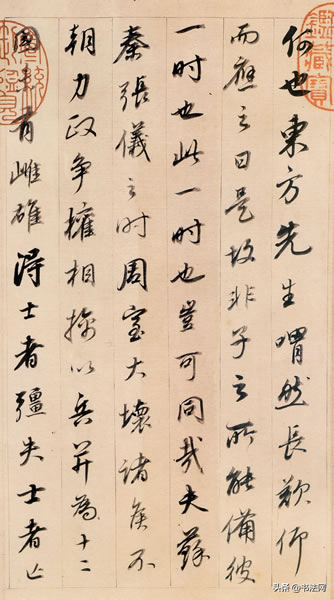 何也東方先生喟然長歎仰
而應之曰是故非子之所能備彼
一時也此一時也豈可同哉夫蘇
秦張儀之時周室大壞諸侯不
朝力政争權相擒以兵并為十二
國未有雌雄得士者彊失士者亡
鑑藏寶
头条 @书法网